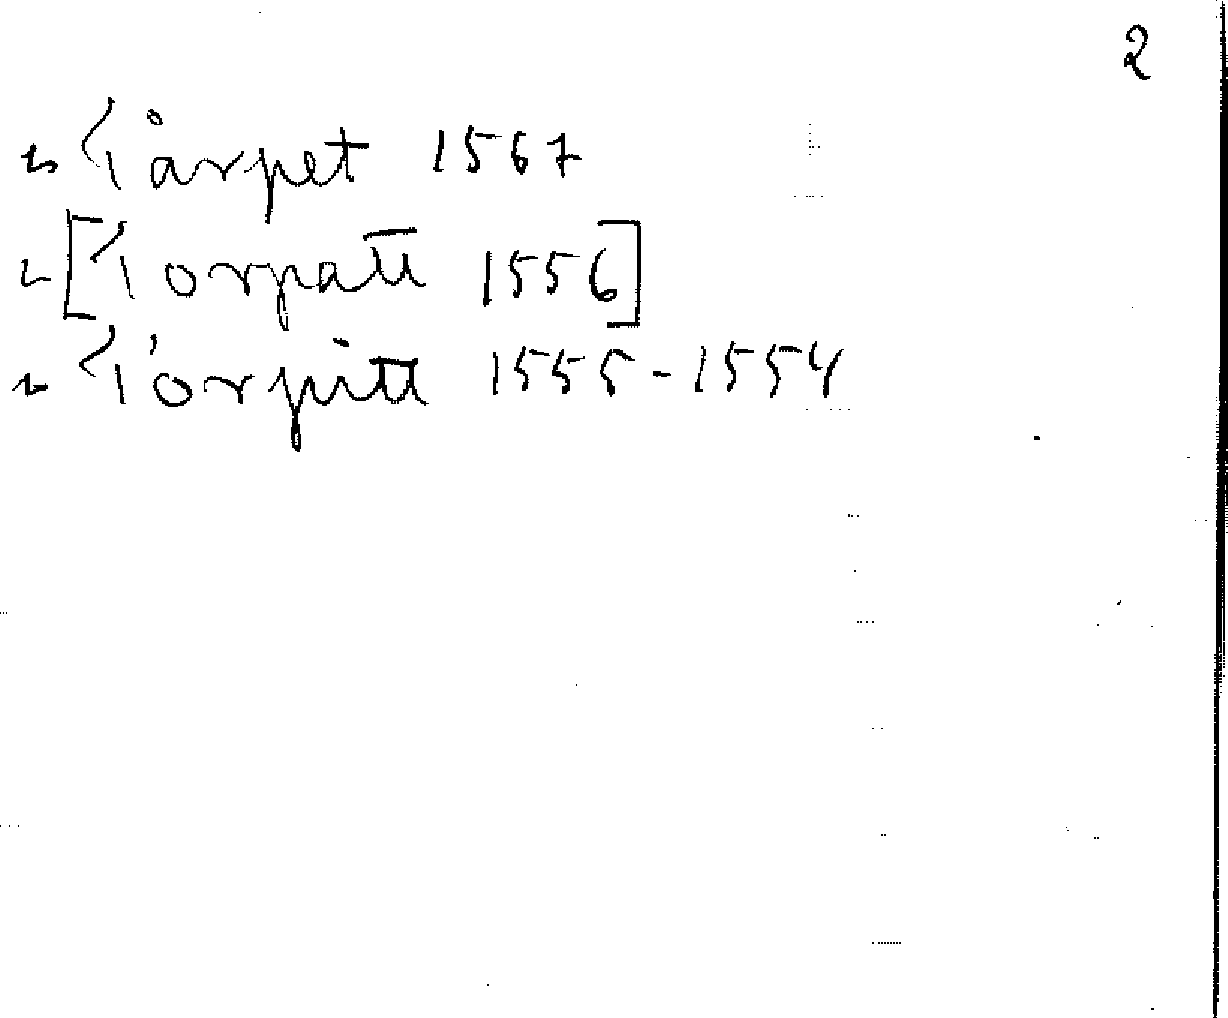 2
" Tårpet 1567
" [Torpatt 1556]
" Tórpitt 1555-1554